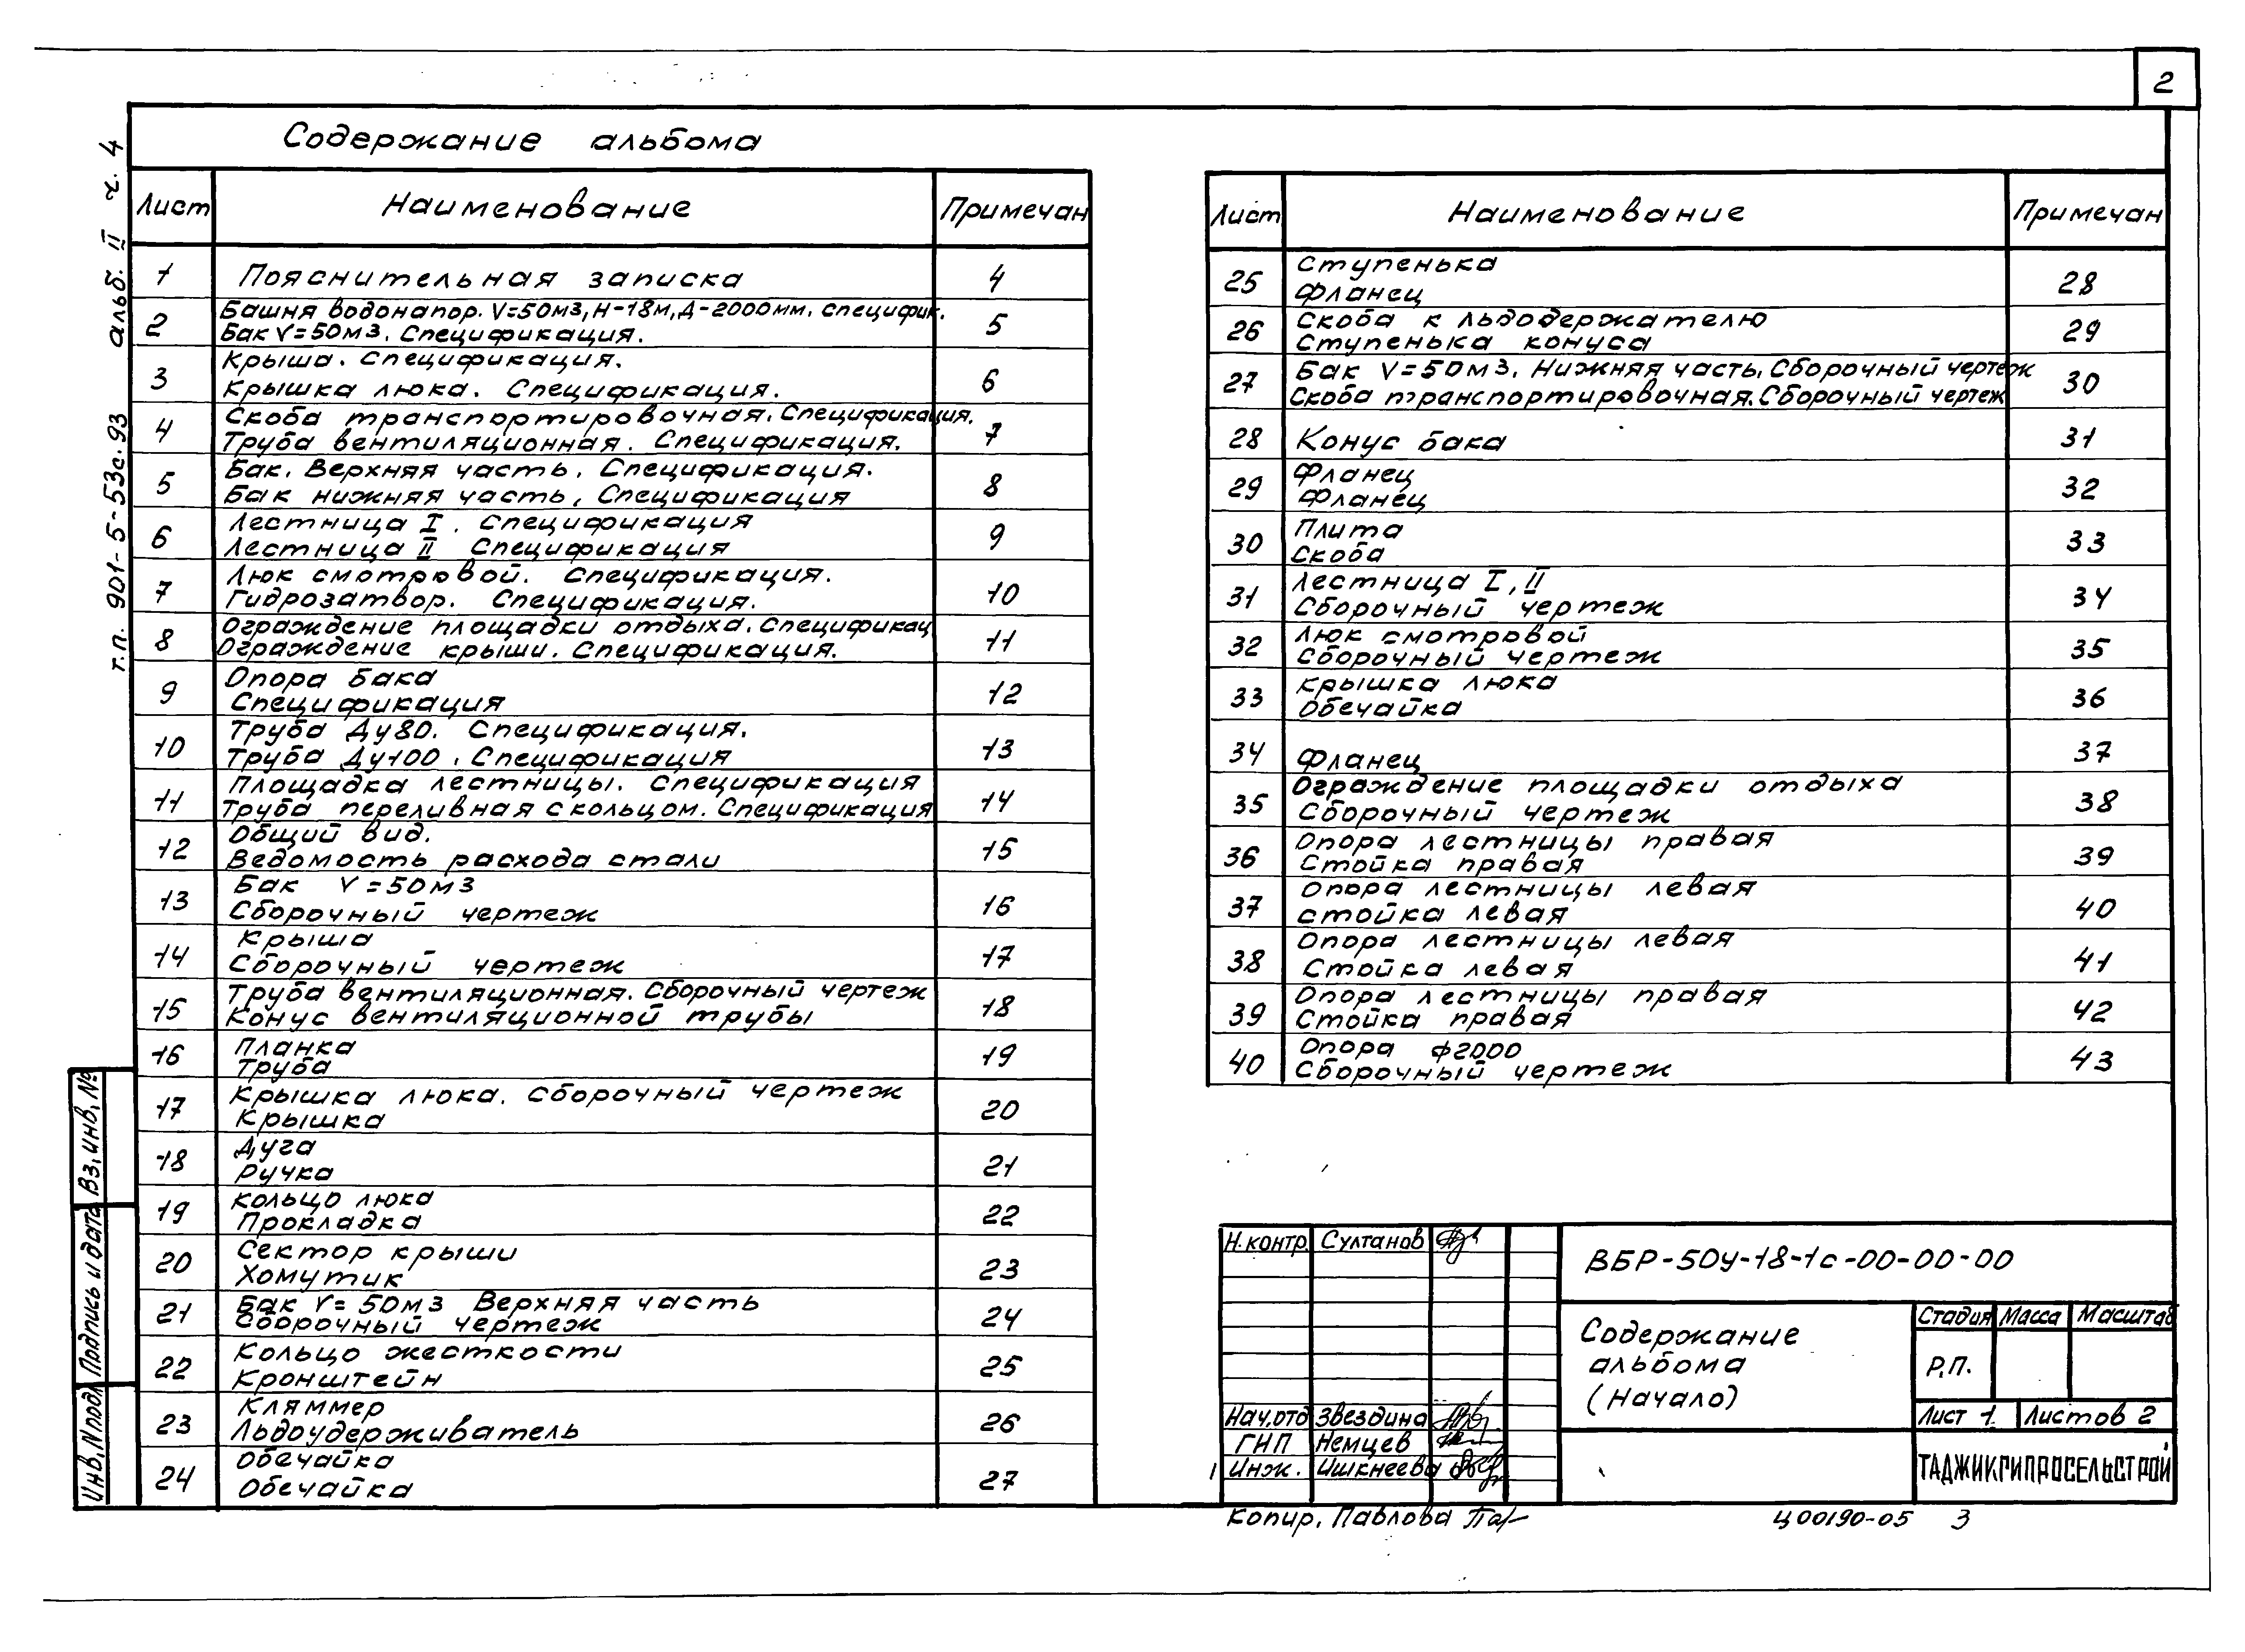 2
Содержание альбома
т.п. 901-5-53с.93 альб. II ч. 4
Лист Наименование Примечан
1 Пояснительная записка 4
2 Башня водонапор. V=50м3, Н-18м, Д-2000мм. специфик. 5
Бак V=50м3. Спецификация.
3 Крыша. Спецификация. 6
Крышка люка. Спецификация.
4 Скоба транспортировочная. Спецификация. 7
Труба вентиляционная. Спецификация.
5 Бак. Верхняя часть. Спецификация. 8
Бак нижняя часть. Спецификация
6 Лестница I. Спецификация 9
Лестница II Спецификация
7 Люк смотровой. Спецификация. 10
Гидрозатвор. Спецификация.
8 Ограждение площадки отдыха. Спецификац 11
Ограждение крыши. Спецификация.
9 Опора бака 12
Спецификация
10 Труба Ду80. Спецификация. 13
Труба Ду100. Спецификация
11 Площадка лестницы. Спецификация 14
Труба переливная с кольцом. Спецификация
12 Общий вид. 15
Ведомость расхода стали
13 Бак V=50м3 16
Сборочный чертеж
14 Крыша 17
Сборочный чертеж
15 Труба вентиляционная. Сборочный чертеж 18
Конус вентиляционной трубы
16 Планка 19
Труба
17 Крышка люка. Сборочный чертеж 20
Крышка
18 Дуга 21
Ручка
19 Кольцо люка 22
Прокладка
20 Сектор крыши 23
Хомутик
21 Бак V=50м3 Верхняя часть 24
Сборочный чертеж
22 Кольцо жесткости 25
Кронштейн
23 Кляммер 26
Льдоудерживатель
24 Обечайка 27
Обечайка
Лист Наименование Примечан
25 Ступенька 28
Фланец
26 Скоба к льдодержателю 29
Ступенька конуса
27 Бак V=50м3. Нижняя часть. Сборочный чертеж 30
Скоба транспортировочная. Сборочный чертеж
28 Конус бака 31
29 Фланец 32
Фланец
30 Плита 33
Скоба
31 Лестница I, II 34
Сборочный чертеж
32 Люк смотровой 35
Сборочный чертеж
33 Крышка люка 36
Обечайка
34 Фланец 37
35 Ограждение площадки отдыха 38
Сборочный чертеж
36 Опора лестницы правая 39
Стойка правая
37 Опора лестницы левая 40
стойка левая
38 Опора лестницы левая 41
Стойка левая
39 Опора лестницы правая 42
Стойка правая
40 Опора ф2000 43
Сборочный чертеж
Вз. инв. №
Подпись и дата
Инв. N подл
Н.контр. Султанов
Нач.отд Звездина
ГНП Немцев
1 Инж. Ишкнеева
ВБР-50У-18-1с-00-00-00
Содержание
альбома
(Начало)
Стадия Масса Масштаб
Р.П.
Лист 1 Листов 2
ТАДЖИКГИПРОСЕЛЬСТРОЙ
Копир. Павлова
Ц00190-05 3